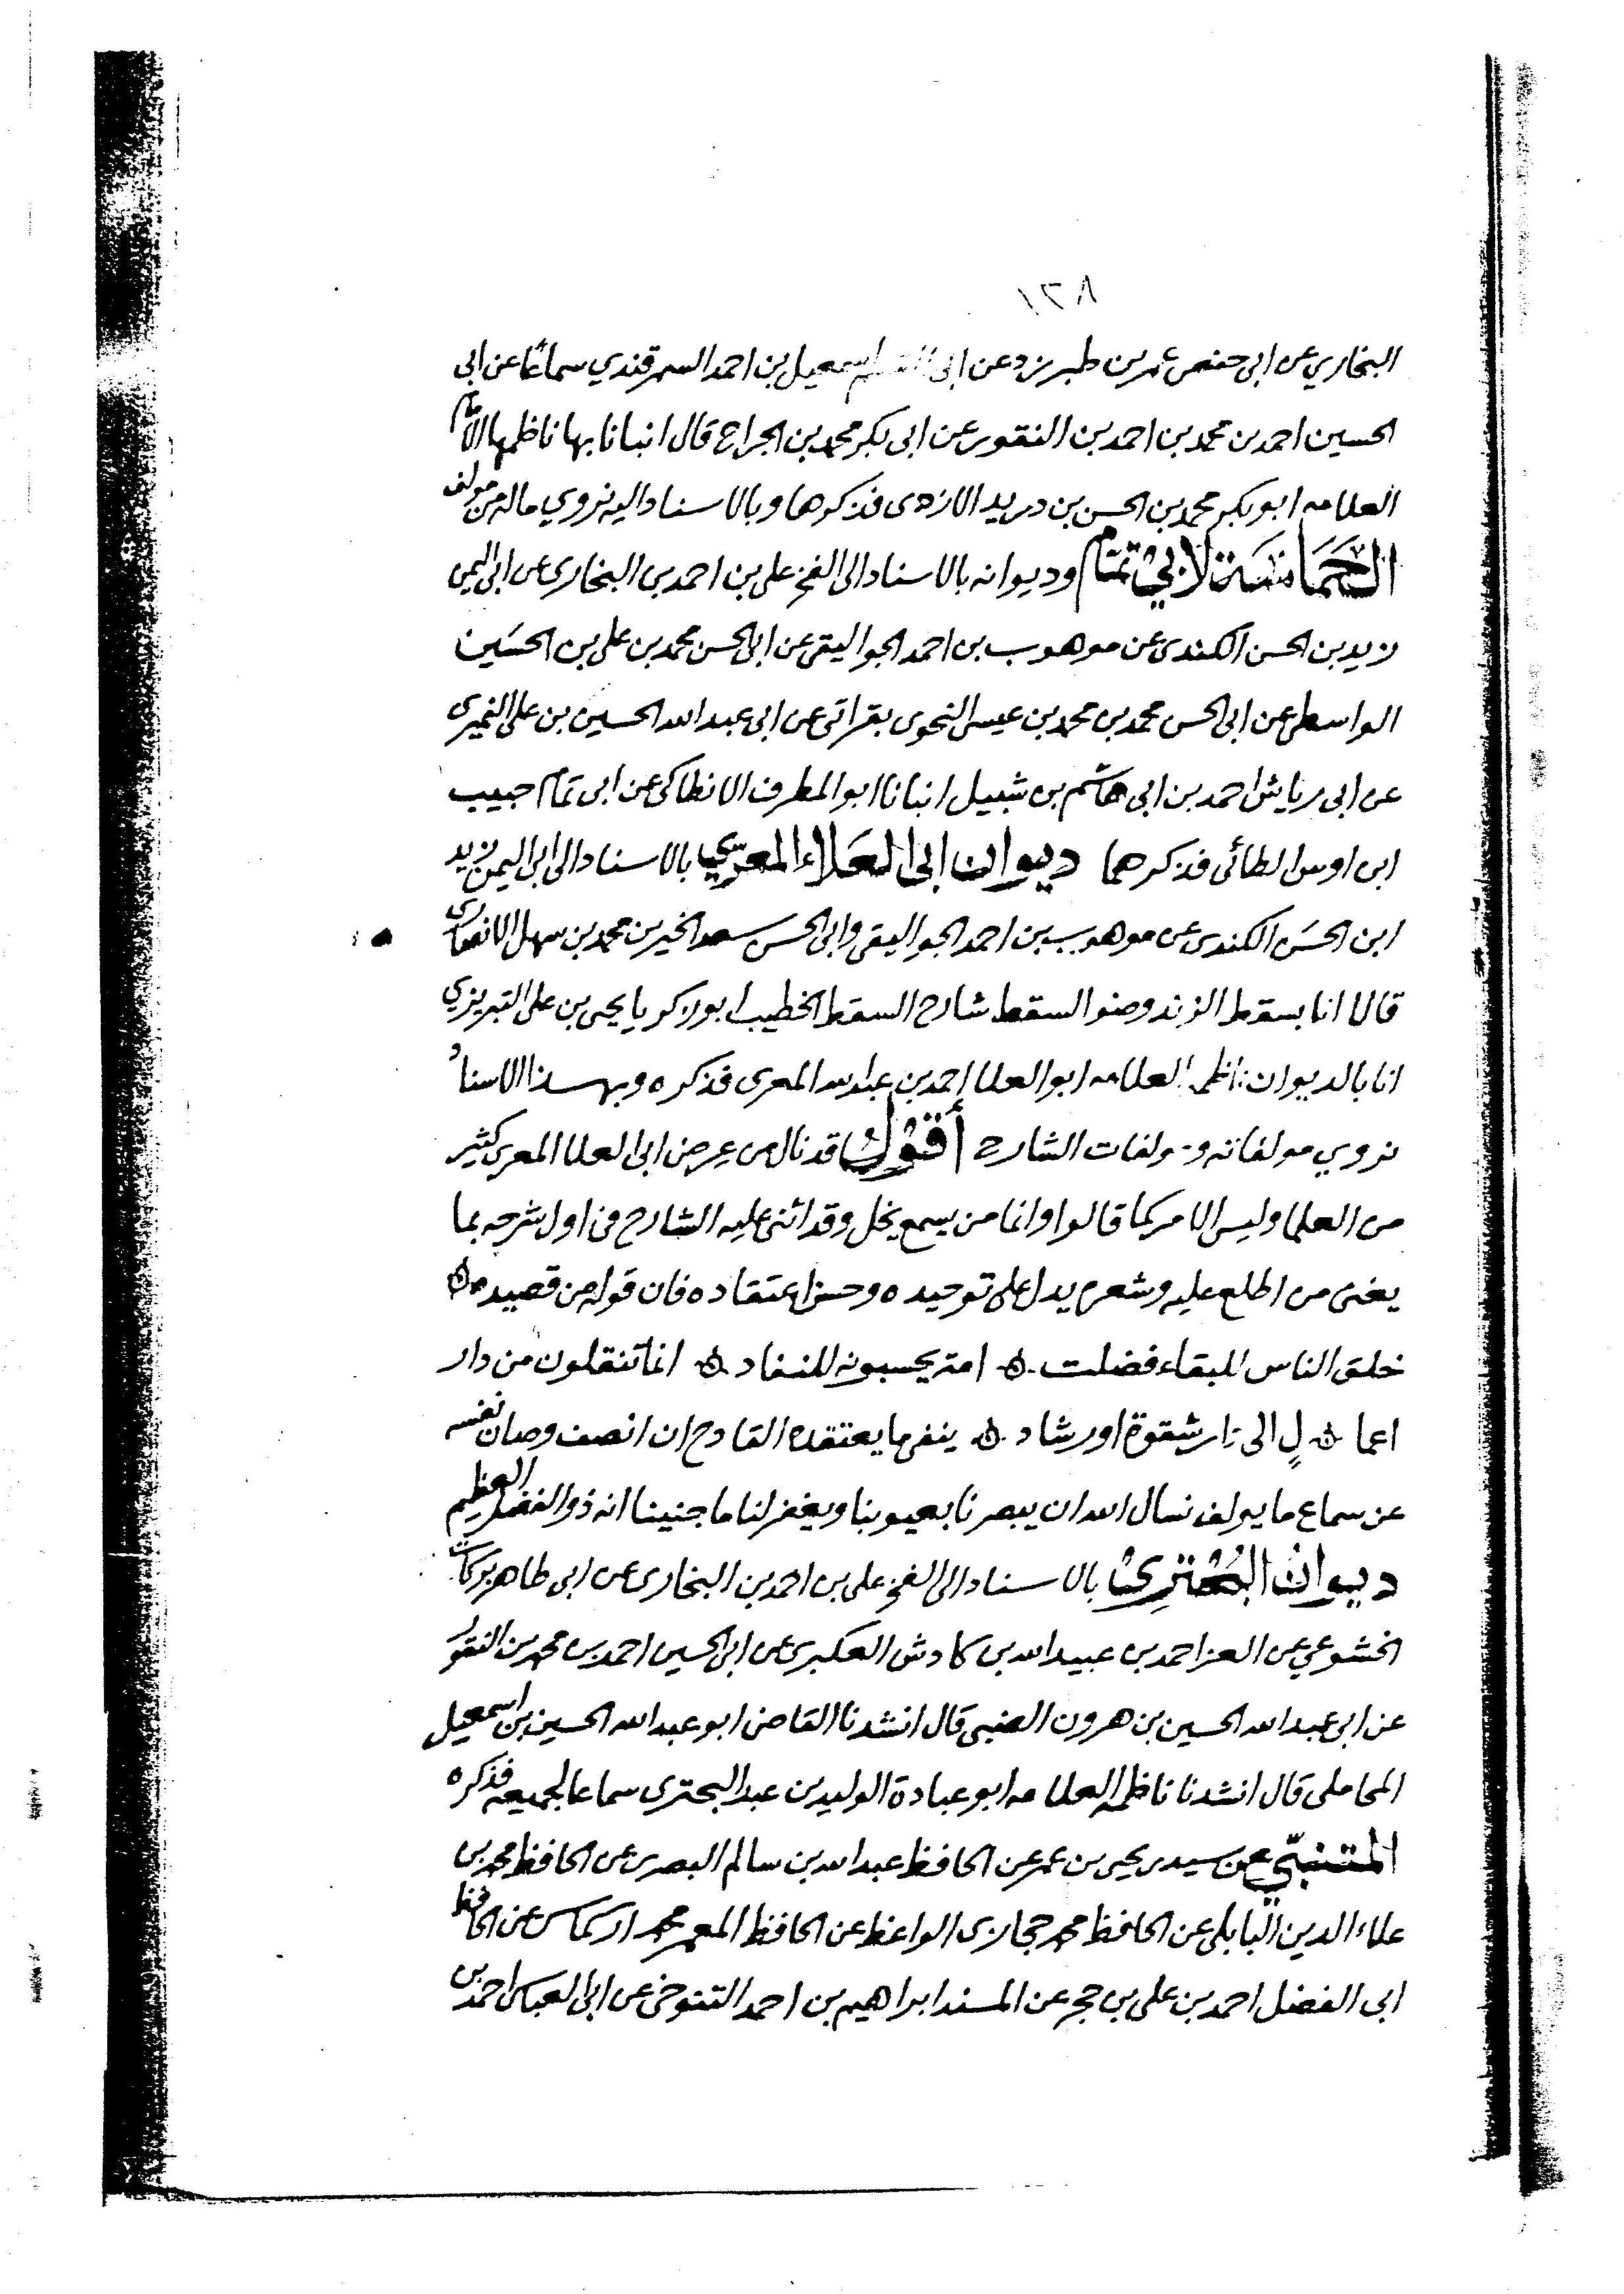 ١٢٨
البخاري عن ابى حفص عمر بن طبرزد عن ابى اسمعيل بن احمد السمرقندي سماعًا عن ابى
الحسين احمد بن محمد بن احمد بن النقور عن ابى بكر محمد بن الجراح قال انبانا بها ناظمها الامام
العلامه ابو بكر محمد بن الحسن بن دريد الازدى فذكرها وبالاسناد اليه نروي ماله من مولف
الحَمَاسَة لأبي تمام وديوانه بالاسناد الى الفخر على بن احمد بن البخارى عن ابى اليمن
زيد بن الحسن الكندى عن موهوب بن احمد الجواليقى عن ابى الحسن محمد بن على بن الحسَين
الواسطى عن ابى الحسن محمد بن محمد بن عيسى النحوى بقراتى عن ابى عبد الله الحسين بن على النميرى
عن ابى رياش احمد بن ابى هاشم بن شبيل انبانا ابو المطرف الانطاكى عن ابى تمام حبيب
ابن اوس الطائى فذكرهما ديوان ابى العَلاء المعرّي بالاسناد الى ابى اليمن زيد
ابن الحسَن الكندى عن موهوب بن احمد الجواليقى وابى الحسن سعد الخير بن محمد بن سهل الانصارى
قالا انا بسقط الزند وضو السقط شارح السقط الخطيب ابو زكريا يحيى بن على التبريزي
انا بالديوان العلامه ابو العلا احمد بن عبد الله المعرى فذكره وبهذا الاسناد
نروي مولفاته ومولفات الشارح أقول قد نال من عرض ابى العلا المعرى كثير
من العلما وليس الامر كما قالوا وانما من يسمع يخل وقد اثنى عليه الشارح فى اول شرحه بما
يغنى من اطلع عليه وشعره يدل على توحيده وحسن اعتقاده فان قوله من قصيده ۞
خلق الناس للبقاء فضلت ۞ امة يحسبونه للنفاد ۞ انما تنقلون من دار
اعما ۞ لٍ الى دار شقوة او رشاد ۞ ينفى ما يعتقده القادح ان انصف وصان نفسه
عن سماع ما يولف نسال الله ان يبصرنا بعيوبنا ويغفر لنا ما جنينا انه ذو الفضل العظيم
ديوانُ البُحْتِرِى بالاسناد الى الفخر على بن احمد بن البخارى عن ابى طاهر بركات
الخشوعي عن العز احمد بن عبيد الله بن كادش العكبرى عن ابى الحسين احمد بن محمد بن النقور
عن ابى عبد الله الحسين بن هرون الضبى قال انشدنا القاضى ابو عبد الله الحسين بن اسمعيل
المحاملى قال انشدنا ناظمه العلامه ابو عبادة الوليد بن عبد البحترى سماعا لجميعه فذكره
المتنبّي عن سيدى يحيى بن عمر عن الحافظ عبد الله بن سالم البصرى عن الحافظ محمد بن
علاء الدين البابلى عن الحافظ محمد حجازى الواعظ عن الحافظ المعمر محمد اركماس عن الحافظ
ابى الفضل احمد بن على بن حجر عن المسند ابراهيم بن احمد التنوخى عن ابى العباس احمد بن